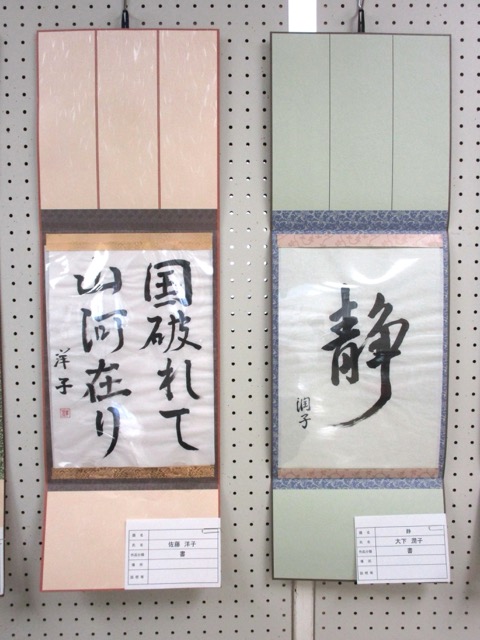 国破れて
山河在り
洋子
題名
氏名 佐藤 洋子
作品分類 書
静
潤子
題名 静
氏名 大下 潤子
作品分類 書